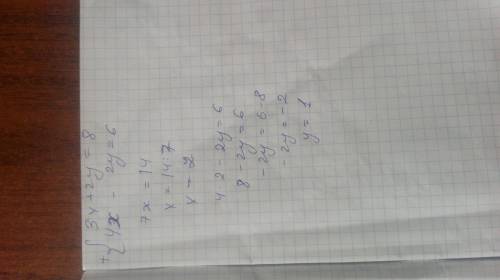 +{ 3x + 2y = 8
4x - 2y = 6
7x = 14
x = 14:7
x = 2
4·2 - 2y = 6
8 - 2y = 6
-2y = 6-8
2y = -2
y = 1